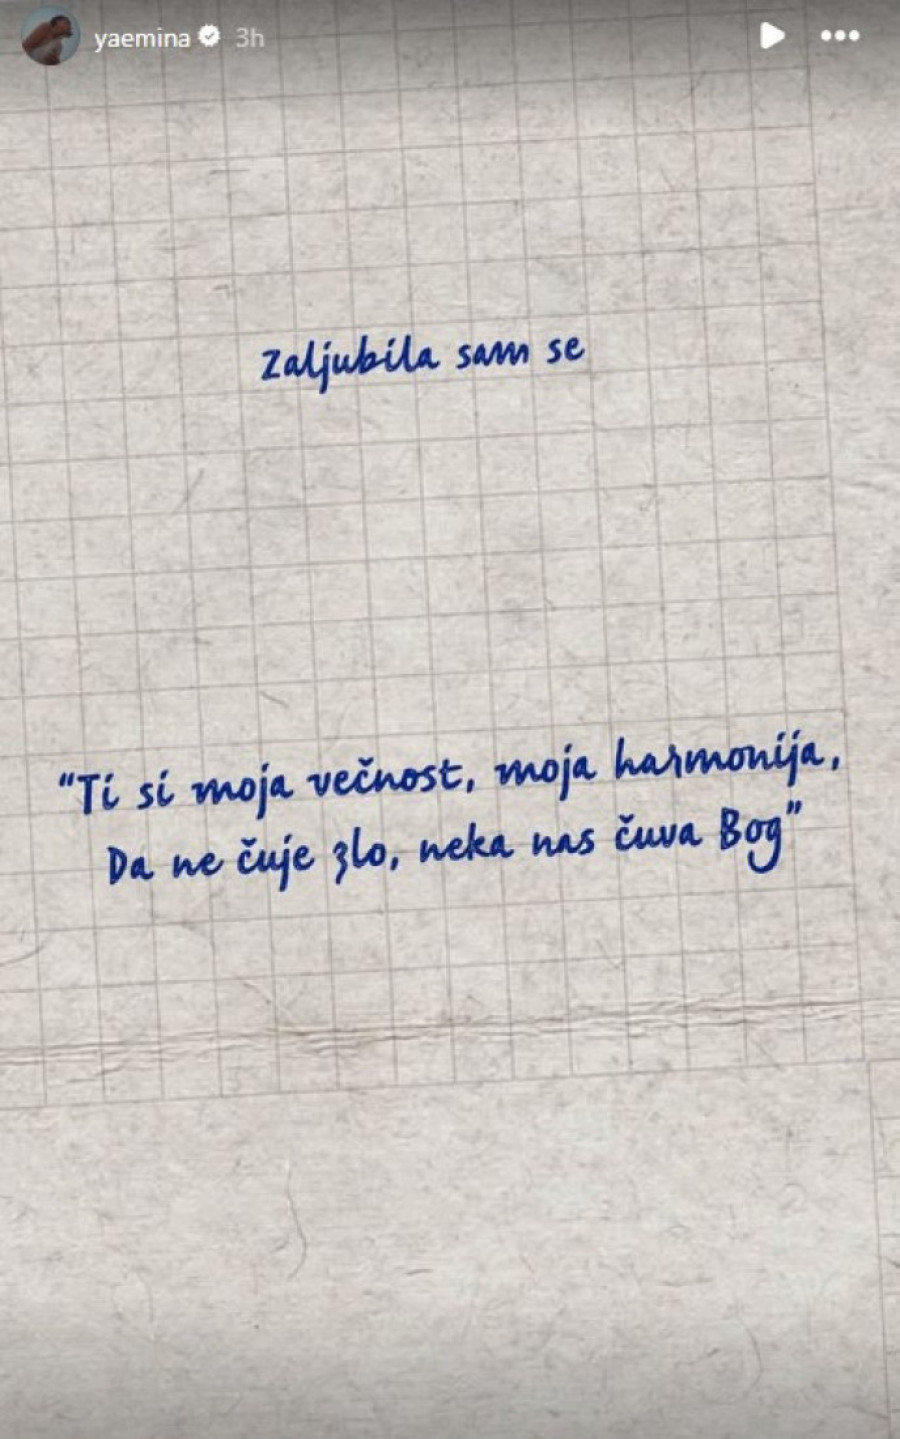 yaemina 3h
Zaljubila sam se
“Ti si moja večnost, moja harmonija,
Da ne čuje zlo, neka nas čuva Bog”